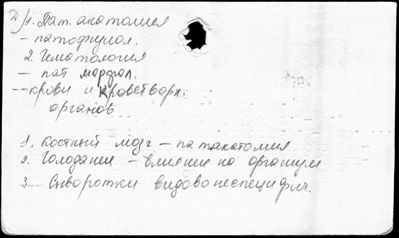 2) 1. Пат. анатомия
- патофизиол.
2. Гематология
- пат морфол.
-- крови и кроветворн.
органов
1. Костный мозг - патанатомия
2. Голодание - влияние на организм
3. Сыворотки видовонеспецифич.